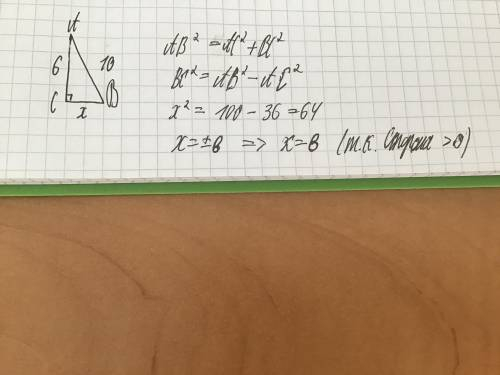 A
6
10
C
B
x
AB² = AC² + BC²
BC² = AB² - AC²
x² = 100 - 36 = 64
x = ±8 => x = 8 (т.к. сторона > 0)